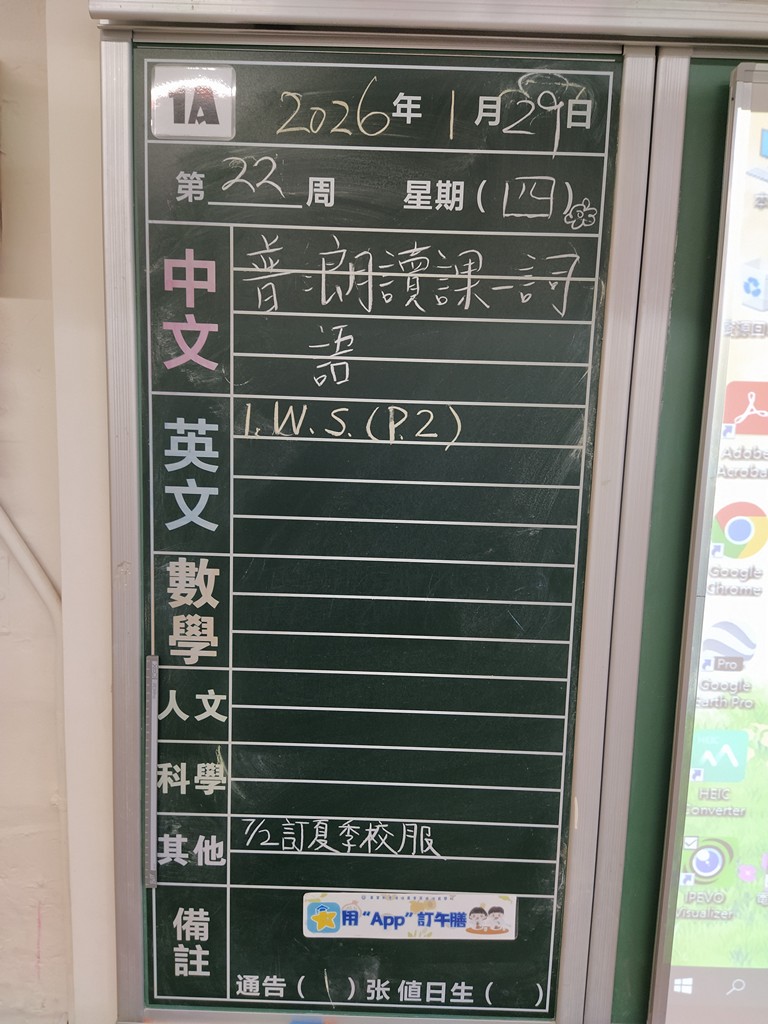 1A
2026年1月29日
第22周 星期(四)
中文
普:朗讀課一詞
語
英文
1. W.S. (P.2)
數學
人文
科學
其他
7/2訂夏季校服
備註
用“App”訂午膳
通告(1)张 值日生( )
Adobe
Acrobat
Google
Chrome
Pro
Google
Earth Pro
HEIC
HEIC
Converter
IPEVO
Visualizer